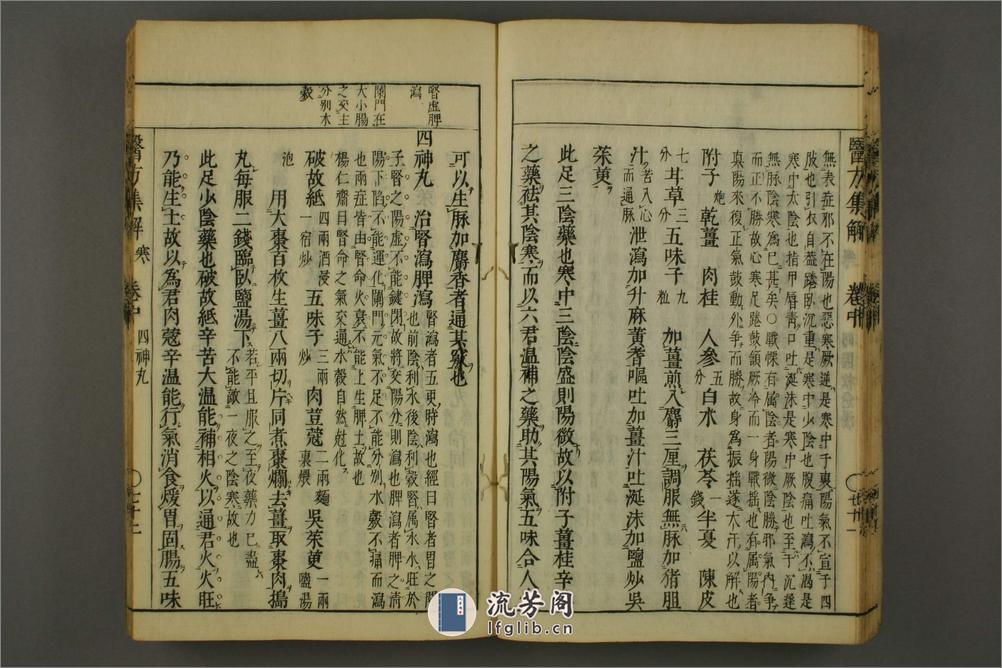 醫方集解
卷中
無表症邪不在陽也惡寒厥逆是寒中于裏陽氣不宣于四
肢也引衣自葢踡臥沉重是寒中少陰也腹痛吐瀉不渴是
寒中太陰也指甲唇靑口吐涎沫是寒中厥陰也至于沉遲
無脉陰寒爲已甚矣○戰慄有屬陰者陽微陰勝邪氣內爭
而正不勝故心寒足踡鼓頷厥冷而一身戰搖也有屬陽者
眞陽來復正氣鼓動外爭而勝故身爲振搖遂大汗以解也
附子炮 乾薑 肉桂 人參五分 白朮 茯苓錢 半夏 陳皮
七分 甘草三分 五味子九粒 加薑煎入麝三厘調服無脉加猪胆
汁苦入心而通脉 泄瀉加升麻黃耆嘔吐加薑汁吐涎沫加鹽炒吳
茱萸
此足三陰藥也寒中三陰陰盛則陽微故以附子薑桂辛
之藥祛其陰寒而以六君溫補之藥助其陽氣五味合人
可以生脉加麝香者通其竅也
腎虛脾
瀉
闌門在
大小腸
之交主
分別水
穀
四神丸 治腎瀉脾瀉
腎瀉者五更時瀉也經曰腎者胃之
也前陰利水後陰利穀腎属水水旺於
子腎之陽虛不能鍵閉故將交陽分則瀉也脾瀉者脾之淸
陽下陷不能運化闌門元氣不足不能分別水穀不痛而瀉
也兩症皆由腎命火衰不能上生脾土故也
楊仁齋曰腎命之氣交通水穀自然尅化
破故紙四兩酒浸一宿炒 五味子三兩炒 肉荳蔻二兩麵裹煨 吳茱萸一兩鹽湯
泡
用大棗百枚生薑八兩切片同煮棗爛去薑取棗肉搗
丸每服二錢臨臥鹽湯下若平旦服之至夜藥力已盡不能敵一夜之陰寒故也
此足少陰藥也破故紙辛苦大温能補相火以通君火火旺
乃能生土故以爲君肉蔻辛温能行氣消食煖胃固腸五味
醫方集解
寒
卷中
四神丸
七十二
流芳阁
lfglib.cn